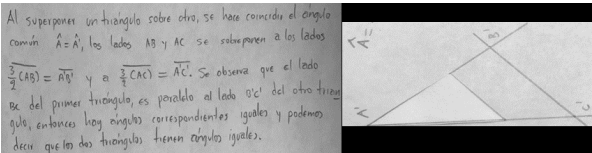 Al superponer un triángulo sobre otro, se hace coincidir el ángulo
común Â = Â', los lados AB y AC se sobreponen a los lados
3/2 (AB) = A'B' y a 3/2 (AC) = A'C'. Se observa que el lado
BC del primer triángulo, es paralelo al lado B'C' del otro trian
gulo, entonces hay ángulos correspondientes iguales y podemos
decir que los dos triángulos tienen ángulos iguales.